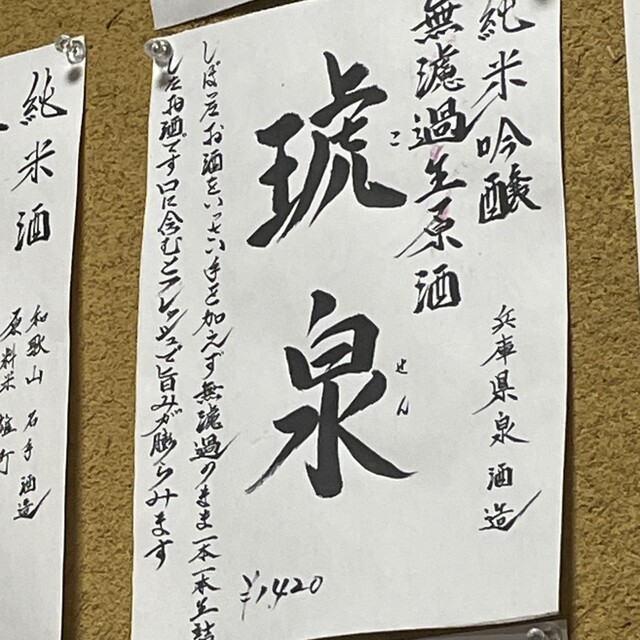 純米吟醸
兵庫県泉酒造
無濾過生原酒
琥泉
こ
せん
しぼった お酒をいっさい手を加えず無濾過のまま一本一本生詰
したお酒です口に含むとフレッシュで旨みが膨らみます
¥1,420
純米酒
和歌山 石手酒造
原料米 雄町